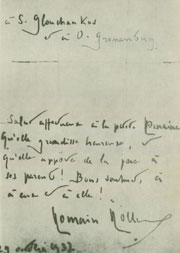 à S. Glouchankus
et à O. Gronenburg
Salut affectueux à la petite
Qu'elle grandisse heureuse, et
qu'elle apporte de la joie à
ses parents ! Bons souhaits, à
à eux et à elle !
Romain Rolland
29 octobre 1937